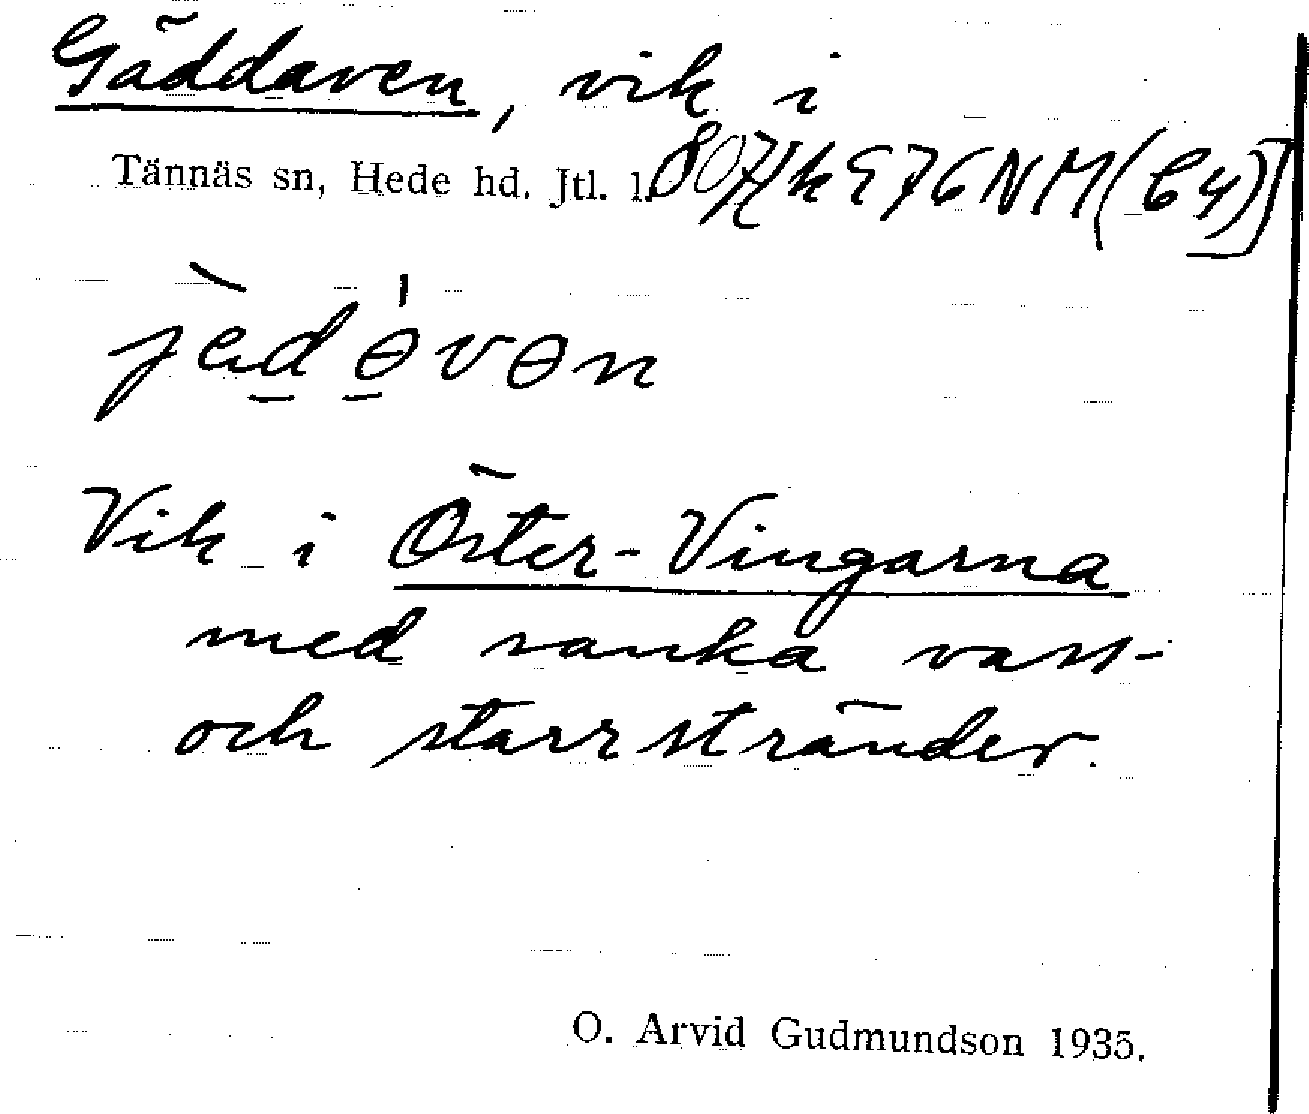 Gäddaven, vik i
Tännäs sn, Hede hd. Jtl. l.
Vik i Öster-Vingarna
med sanka vass-
och starrstränder.
O. Arvid Gudmundson 1935.